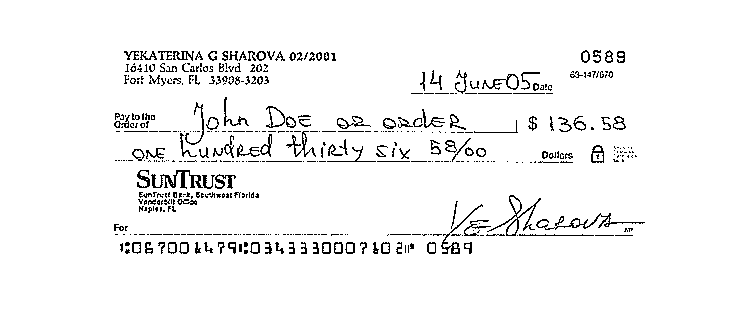 YEKATERINA G SHAROVA 02/2001 0589
16410 San Carlos Blvd 202
Fort Myers, FL 33908-3203
63-147/670
14 JUNE 05 Date
Pay to the
Order of John DOE OR ORDER $ 136.58
ONE hundred thirty six 58/00 Dollars
SUNTRUST
SunTrust Bank, Southwest Florida
Vanderbilt Office
Naples, FL
For YE Sharova MP